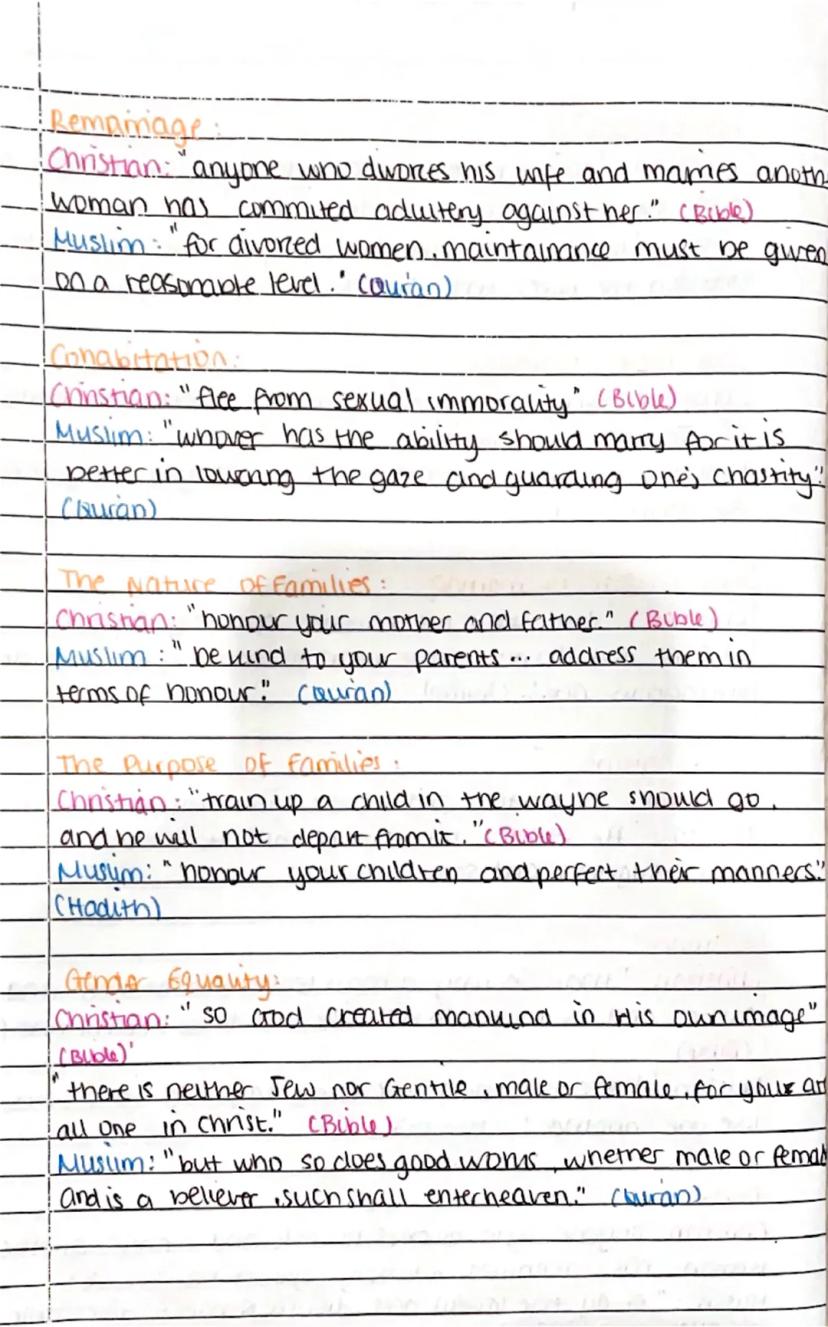 Remarriage:
Christian: "anyone who divorces his wife and marries anoth
woman has commited adultery against her." (Bible)
Muslim: "for divorced women, maintainance must be given
on a reasonable level." (Quran)
Cohabitation:
Christian: "flee from sexual immorality" (Bible)
Muslim: "whover has the ability should marry for it is
better in lowering the gaze and guarding one's chastity."
(Quran)
The Nature of Families:
Christian: "honour your mother and father." (Bible)
Muslim: "be kind to your parents ... address them in
terms of honour." (Quran)
The Purpose of Families:
Christian: "train up a child in the way he should go,
and he will not depart from it." (Bible)
Muslim: "honour your children and perfect their manners."
(Hadith)
Gender Equality:
Christian: "so God created mankind in His own image"
(Bible)'
"there is neither Jew nor Gentile, male or female, for you ar
all one in Christ." (Bible)
Muslim: "but who so does good works, whether male or femal
and is a believer, such shall enter heaven." (Quran)